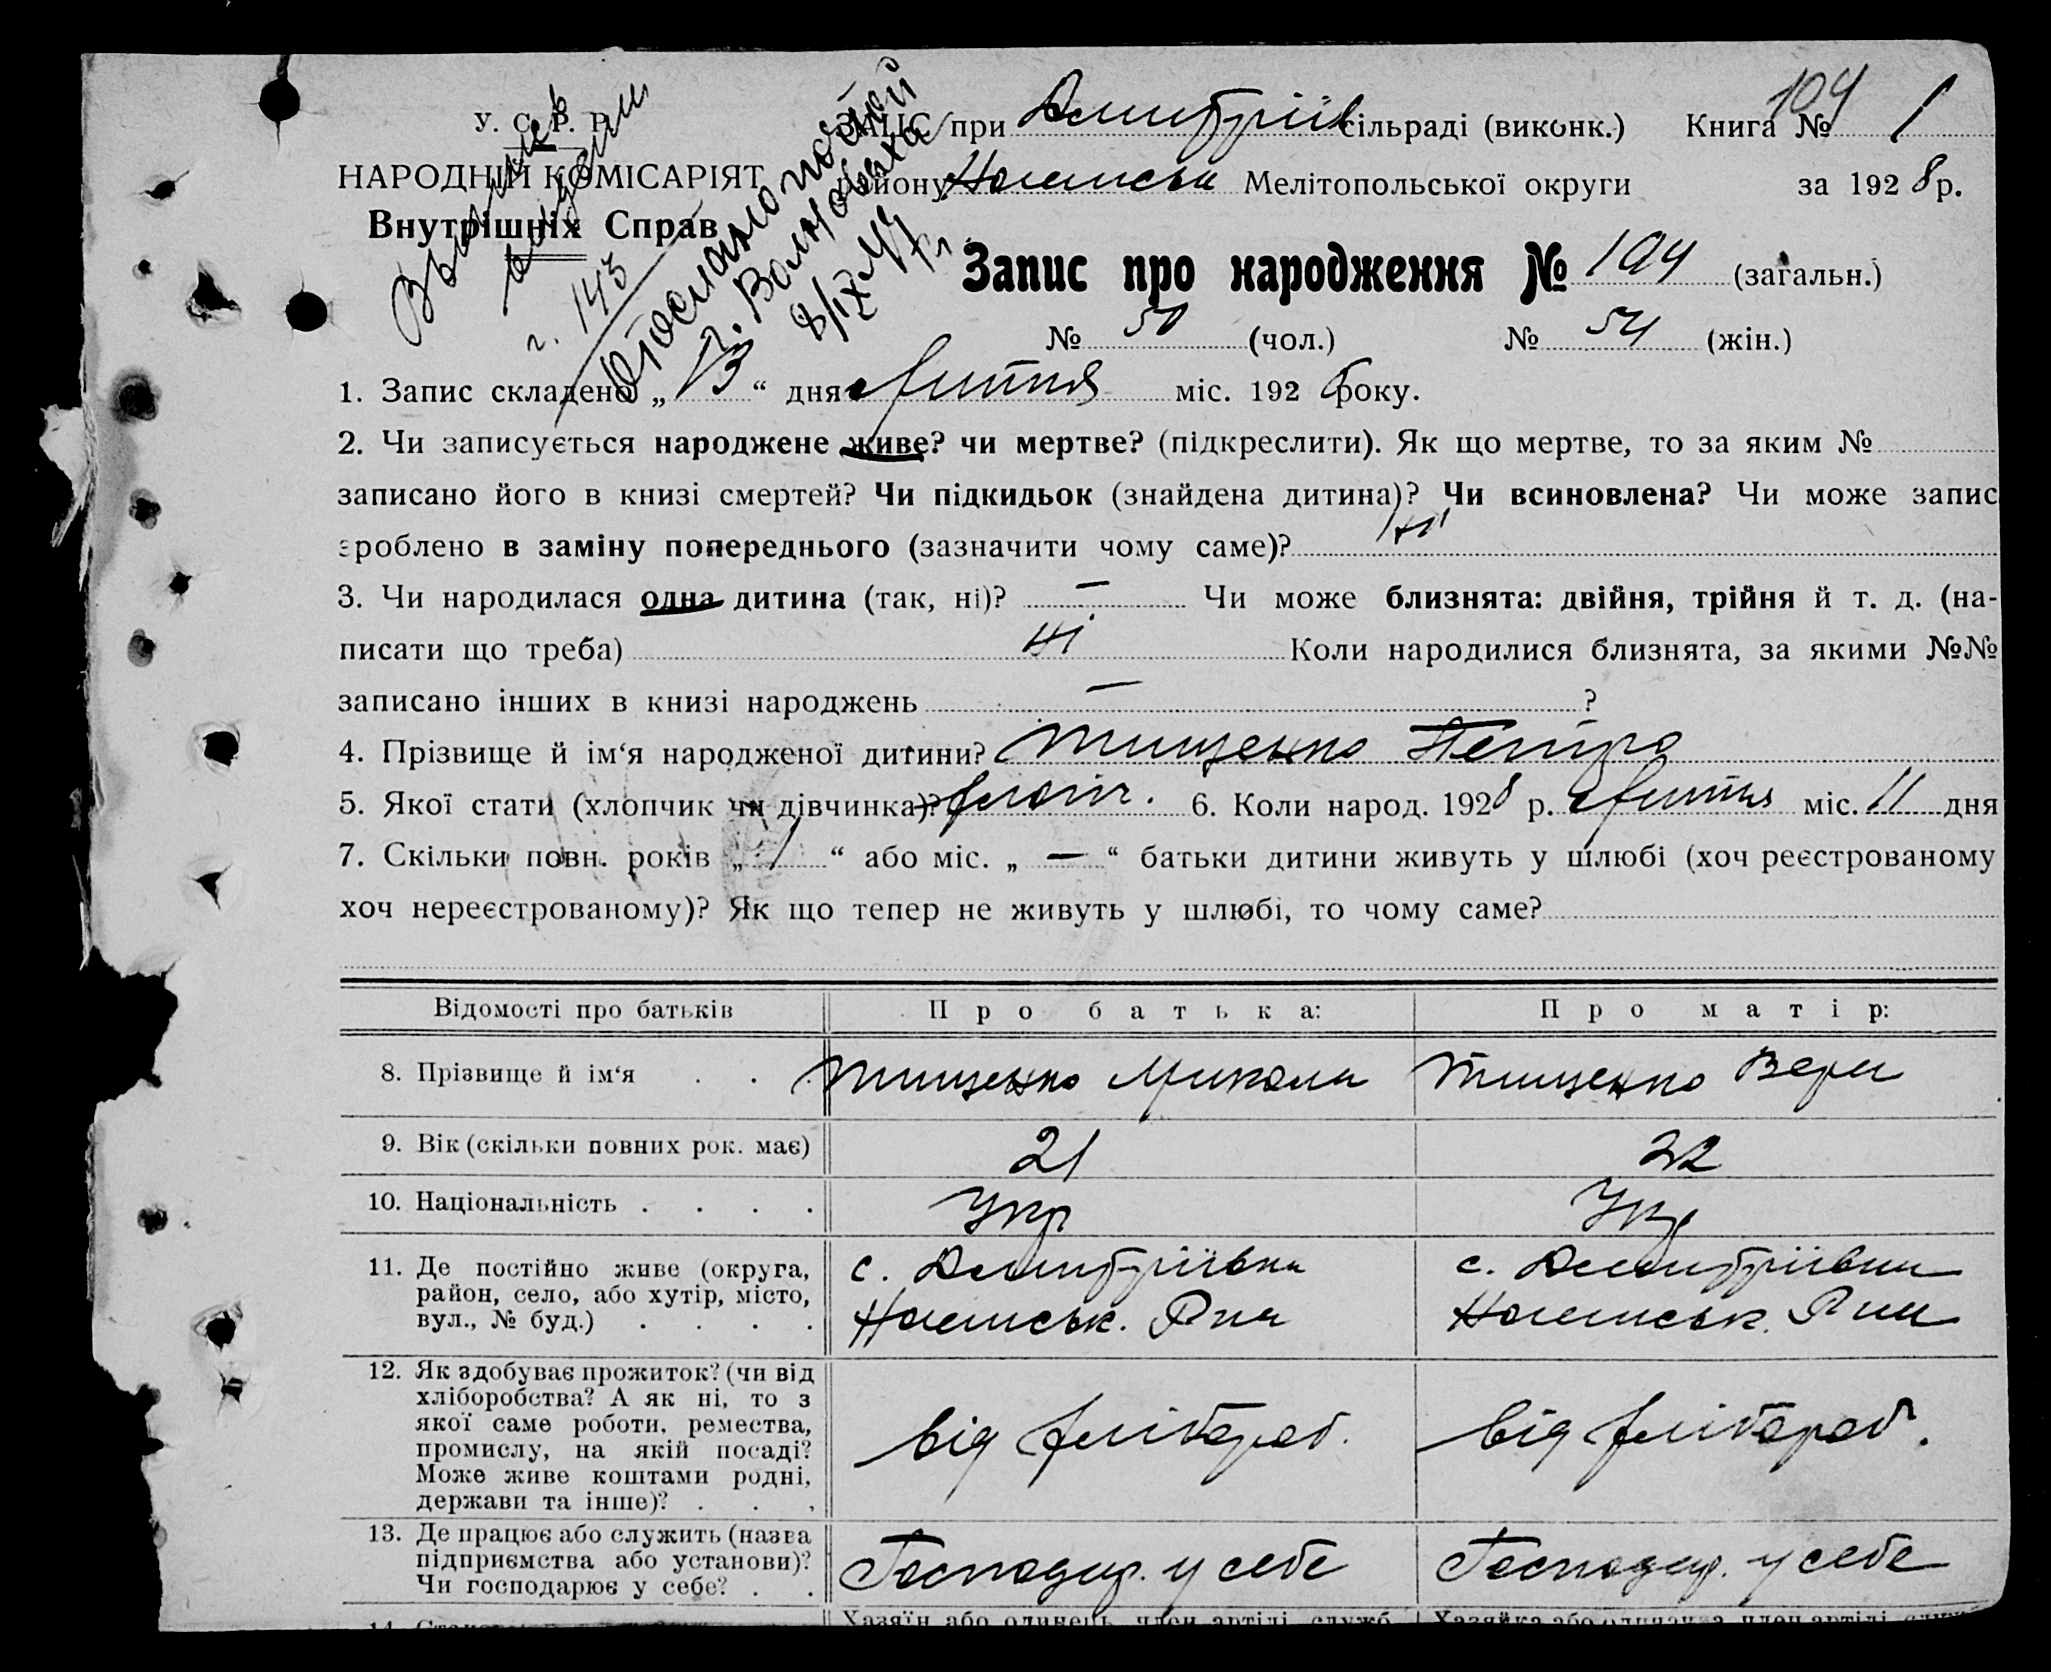 104
У. С. Р. Р. ЗАГС при Дмитрїїв сільраді (виконк.) Книга № 1
НАРОДНІЙ КОМІСАРІЯТ району Ногайськ Мелітопольської округи за 1928 р.
Внутрішніх Справ
г. 143
отослано почтой
г. Волноваха
8/IX 47 г.
Запис про народження № 104 (загальн.)
№ 50 (чол.) № 54 (жін.)
1. Запис складено „ 13 “ дня Липня міс. 192 8 року.
2. Чи записується народжене живе? чи мертве? (підкреслити). Як що мертве, то за яким №
записано його в книзі смертей? Чи підкидьок (знайдена дитина)? Чи всиновлена? Чи може запис
зроблено в заміну попереднього (зазначити чому саме)? ні
3. Чи народилася одна дитина (так, ні)? — Чи може близнята: двійня, трійня й т. д. (на-
писати що треба) ні Коли народилися близнята, за якими №№
записано інших в книзі народжень — ?
4. Прізвище й ім‘я народженої дитини? Тищенко Петро
5. Якої стати (хлопчик чи дівчинка)? хлопч. 6. Коли народ. 1928 р. Липня міс. 11 дня
7. Скільки повн. років „ 1 “ або міс. „ — “ батьки дитини живуть у шлюбі (хоч реєстрованому
хоч нереєстрованому)? Як що тепер не живуть у шлюбі, то чому саме?
Відомості про батьків Про батька: Про матір:
8. Прізвище й ім‘я . . . Тищенко Микола Тищенко Вера
9. Вік (скільки повних рок. має) 21 22
10. Національність . . . . Укр Укр
11. Де постійно живе (округа, с. Дмитріївка с. Дмитріївка
район, село, або хутір, місто, Ногайськ. Р-на Ногайськ. Р-на
вул., № буд.) . . . .
12. Як здобуває прожиток? (чи від
хліборобства? А як ні, то з
якої саме роботи, ремества, від хлібороб. від хлібороб.
промислу, на якій посаді?
Може живе коштами родні,
держави та інше)? . . .
13. Де працює або служить (назва
підприємства або установи)? Господар. у себе Господар. у себе
Чи господарює у себе? . .
14. Хазяїн або одинець, член артілі, служб. Хазяйка або одиначка, член артілі